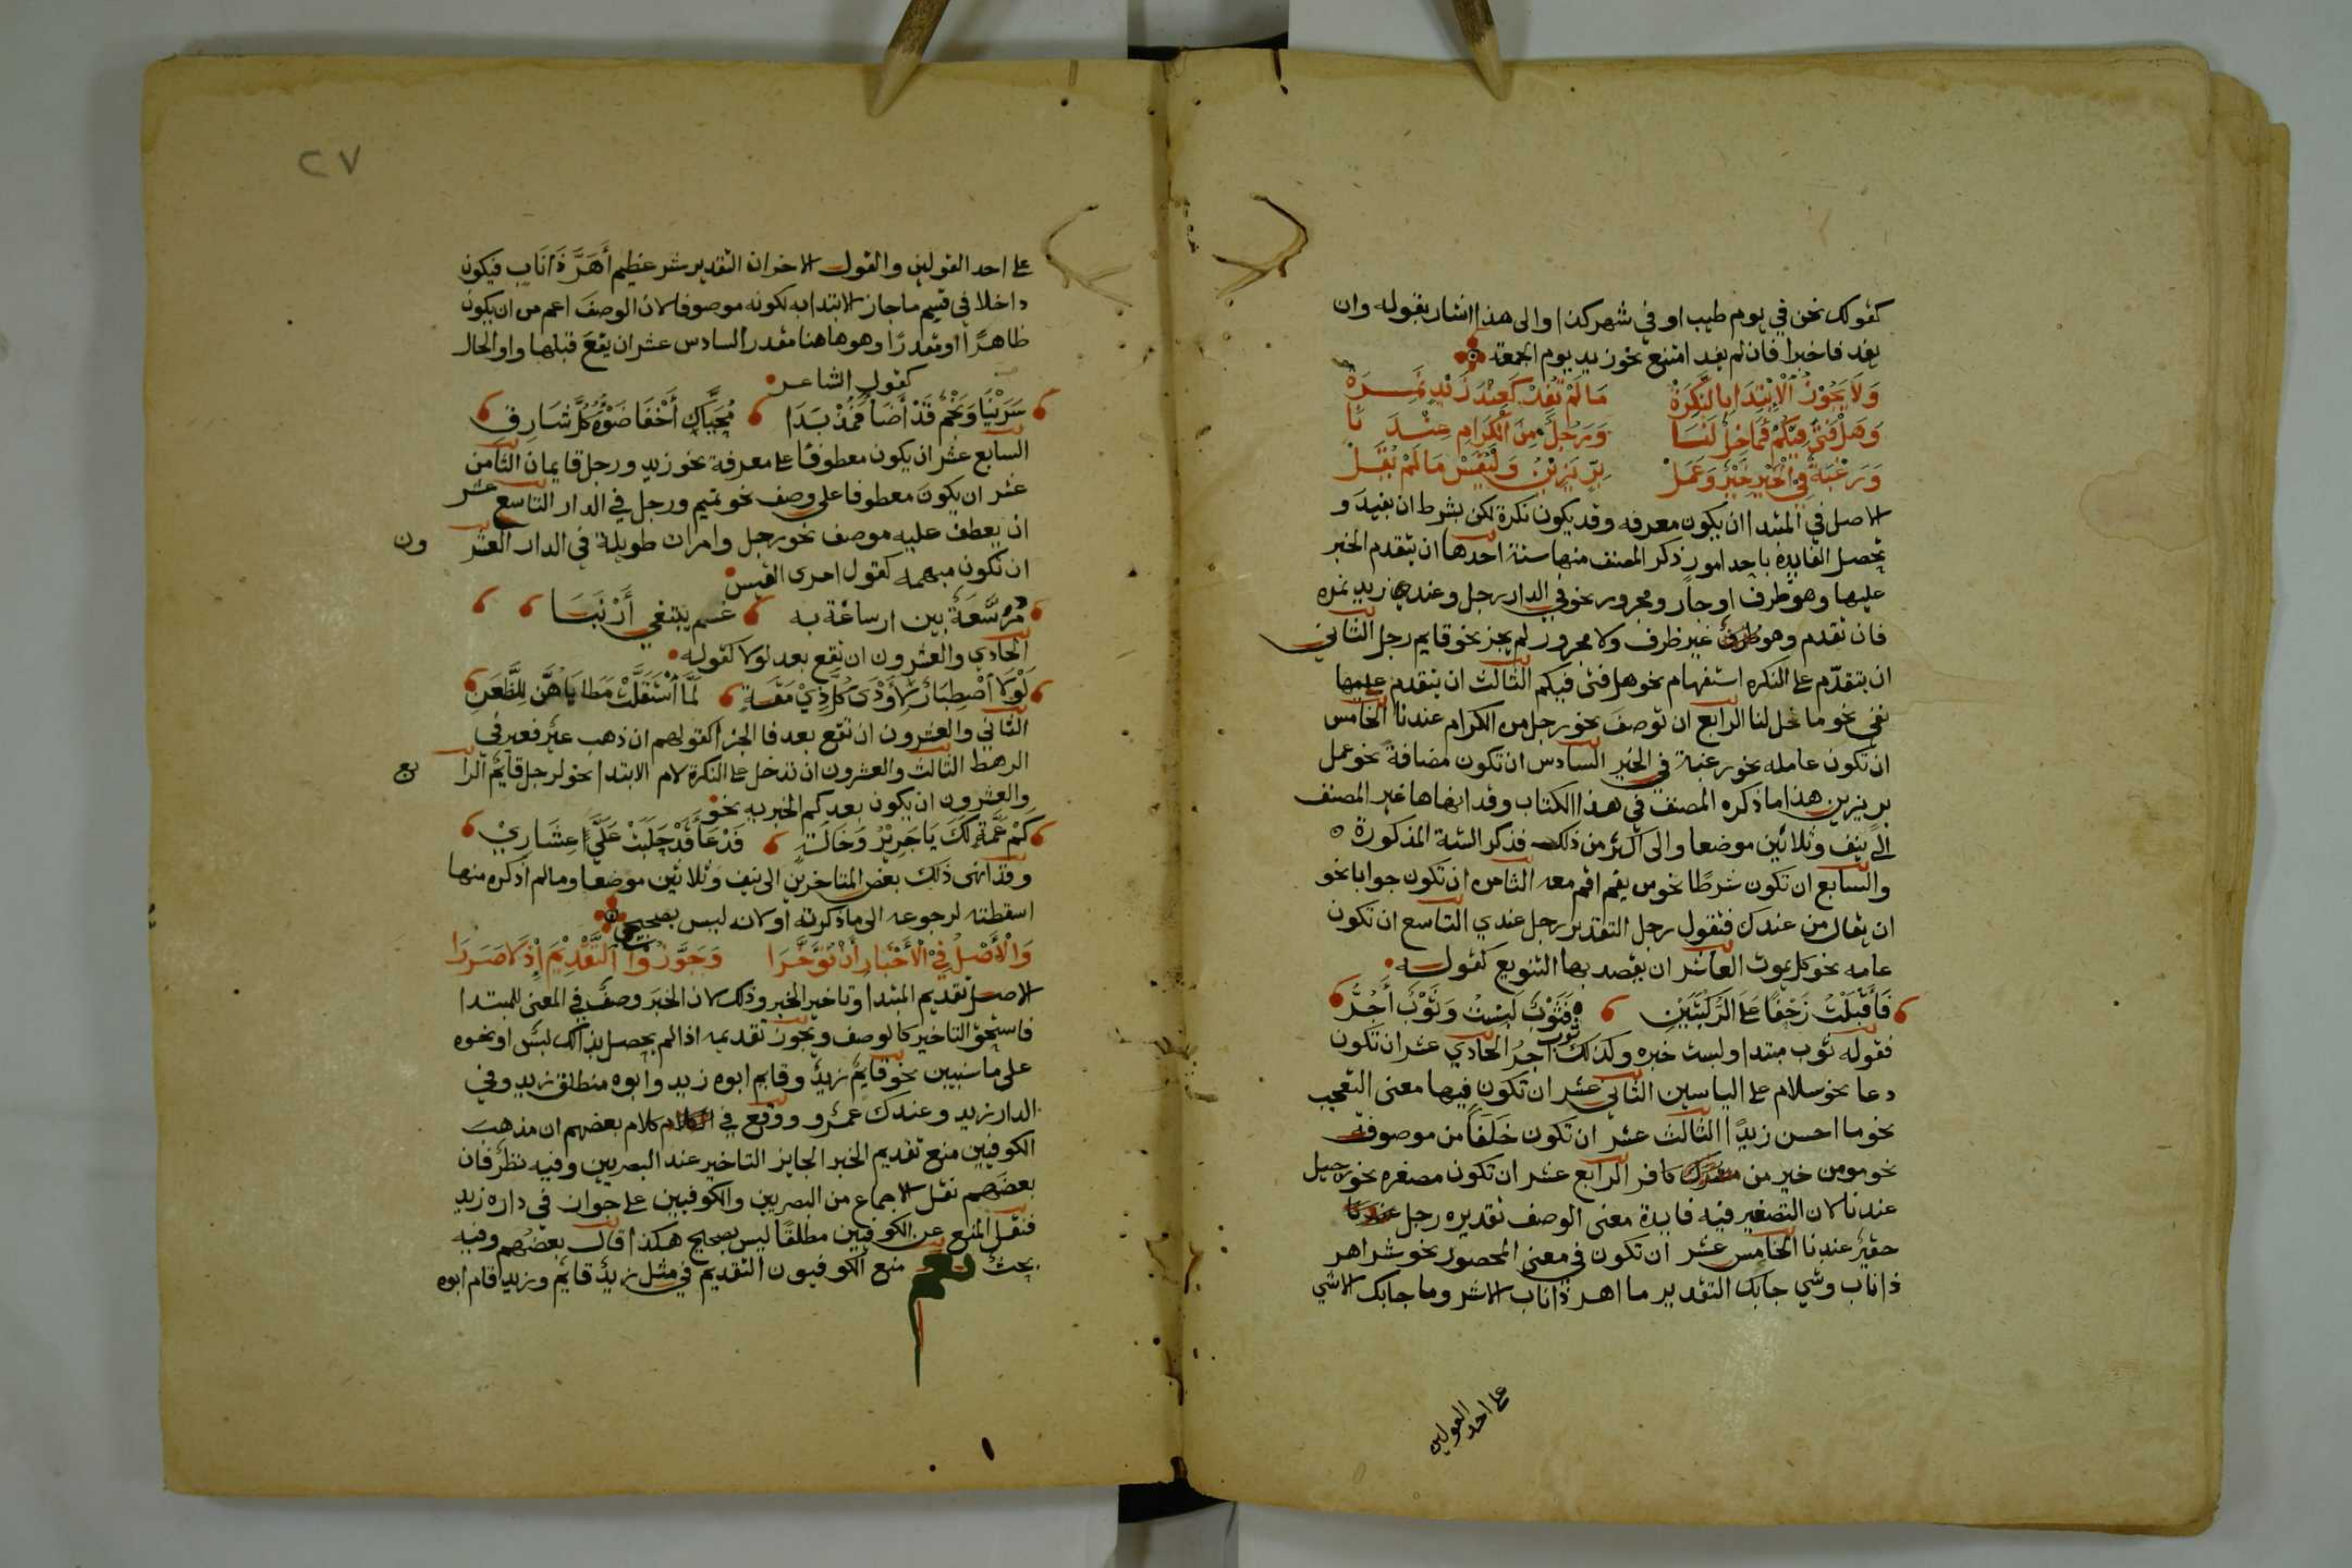 كقولك نحن في يوم طيب او في شهر كذا والى هذا اشار بقوله وان
يفد فاخبرا فان لم يفد امتنع نحو زيد يوم الجمعة
وَلَا يَجُوزُ الْاِبْتِدَا بِالنَّكِرَهْ مَا لَمْ تُفِدْ كَعِنْدَ زَيْدٍ نَمِرَهْ
وَهَلْ فَتًى فِيكُمْ فَمَا خِلٌّ لَنَا وَرَجُلٌ مِنَ الْكِرَامِ عِنْدَنَا
وَرَغْبَةٌ فِي الْخَيْرِ خَيْرٌ وَعَمَلْ بِرٍّ يَزِينُ وَلْيُقَسْ مَا لَمْ يُقَلْ
الاصل في المبتدا ان يكون معرفه وقد يكون نكرة لكن بشرط ان يفيد و
تحصل الفايدة باحد امور ذكر المصنف منها ستة احدها ان يتقدم الخبر
عليها وهو ظرف او جار ومجرور نحو في الدار رجل وعند زيد نمره
فان تقدم وهو غير ظرف ولا مجرور لم يجز نحو قايم رجل الثاني
ان يتقدّم على النكره استفهام نحو هل فتى فيكم الثالث ان يتقدم عليها
نفي نحو ما خل لنا الرابع ان توصف نحو رجل من الكرام عندنا الخامس
ان تكون عامله نحو رغبة في الخير السادس ان تكون مضافة نحو عمل
بر يزين هذا ما ذكره المصنف في هذا الكتاب وقد انهاها غير المصنف
الى نيف وثلاثين موضعا والى اكثر من ذلك فذكر الستة المذكورة
والسابع ان تكون شرطًا نحو من يقم اقم معه الثامن ان تكون جوابا نحو
ان يقال من عندك فتقول رجل التقدير رجل عندي التاسع ان تكون
عامه نحو كل يموت العاشر ان يقصد بها التنويع كقوله
فَأَقْبَلْتُ زَحْفًا عَلَى الرُّكْبَتَيْنِ فَثَوْبٌ لَبِسْتُ وَثَوْبٌ أَجُرُّ
فقوله ثوب مبتدا ولبست خبره وكذلك ثوب اجرُ الحادي عشر ان تكون
دعا نحو سلام على الياسين الثاني عشر ان تكون فيها معنى التعجب
نحو ما احسن زيدًا الثالث عشر ان تكون خَلَفًا من موصوف
نحو مومن خير من كافر الرابع عشر ان تكون مصغره نحو رجيل
عندنا لان التصغير فيه فايدة معنى الوصف تقديره رجل
حقير عندنا الخامس عشر ان تكون في معنى المحصور نحو شر اهر
ذا ناب وشي جابك التقدير ما اهر ذا ناب الا شر وما جابك الا شي
على احد القولين
٢٧
على احد القولين والقول الاخر ان التقدير شر عظيم أَهَرَّ ذَا نَاب فيكون
داخلا في قسم ما جاز الابتدا به لكونه موصوفا لان الوصف اعم من ان يكون
ظاهرًا او مقدرًا وهو هاهنا مقدر السادس عشر ان يقع قبلها واو الحال
كقول الشاعر
سَرَيْنَا وَنَجْمٌ قَدْ أَضَا فَمُذْ بَدَا مُحَيَّاكِ أَخْفَا ضَوْءُهُ كُلَّ شَارِقِ
السابع عشر ان يكون معطوفًا على معرفة نحو زيد ورجل قايمان الثامن
عشر ان يكون معطوفا على وصف نحو تميم ورجل في الدار التاسع عشر
ان يعطف عليه موصف نحو رجل وامراة طويلة في الدار العشرون
ان تكون مبهمه كقول امرى القيس
مُرَسَّعَةٌ بين ارساغه به عسم يبتغي أَرْنَبَا
الحادي والعشرون ان تقع بعد لولا كقوله
لَوْلَا اصْطِبَارٌ لَأَوْدَى كُلُّ ذِيْ مِقَةٍ لَمَّا اسْتَقَلَّتْ مَطَايَاهُنَّ لِلظَّعَنِ
الثاني والعشرون ان تقع بعد فا الجزا كقولهم ان ذهب عير فعير في
الرهط الثالث والعشرون ان تدخل على النكرة لام الابتدا نحو لرجل قايم الرابع
والعشرون ان يكون بعد كم الخبريه نحو
كَمْ عَمَّةٌ لَكَ يَا جَرِيْرُ وَخَالَةٌ فَدْعَاءُ قَدْ حَلَبَتْ عَلَيَّ عِشَارِيْ
وقد انهى ذلك بعض المتاخرين الى نيف وثلاثين موضعا وما لم اذكره منها
اسقطته لرجوعه الى ما ذكرته او لانه ليس بصحيح
وَالْأَصْلُ فِي الْأَخْبَارِ أَنْ تُؤَخَّرَا وَجَوَّزُوا التَّقْدِيْمَ إِذْ لَا ضَرَرَا
الاصل تقديم المبتدا وتاخير الخبر وذلك لان الخبر وصف في المعنى للمبتدا
فاستحق التاخير كالوصف ويجوز تقديمه اذا لم يحصل بذلك لبس او نحوه
على ما سيبين نحو قايم زيد وقايم ابوه زيد وابوه منطلق زيد وفي
الدار زيد وعندك عمرو ووقع في كلام بعضهم ان مذهب
الكوفيين منع تقديم الخبر الجايز التاخير عند البصريين وفيه نظر فان
بعضهم نقل الاجماع من البصريين والكوفيين على جواز في داره زيد
فنقل المنع عن الكوفيين مطلقًا ليس بصحيح هكذا قال بعضهم وفيه
بحث نعم منع الكوفيون التقديم في مثل زيد قايم وزيد قام ابوه